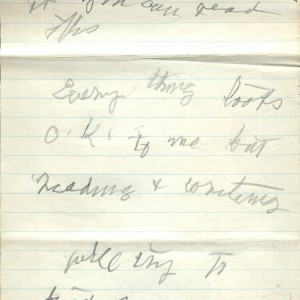 if you can read
this
Every thing looks
O.K. to me but
reading & writing
will try to